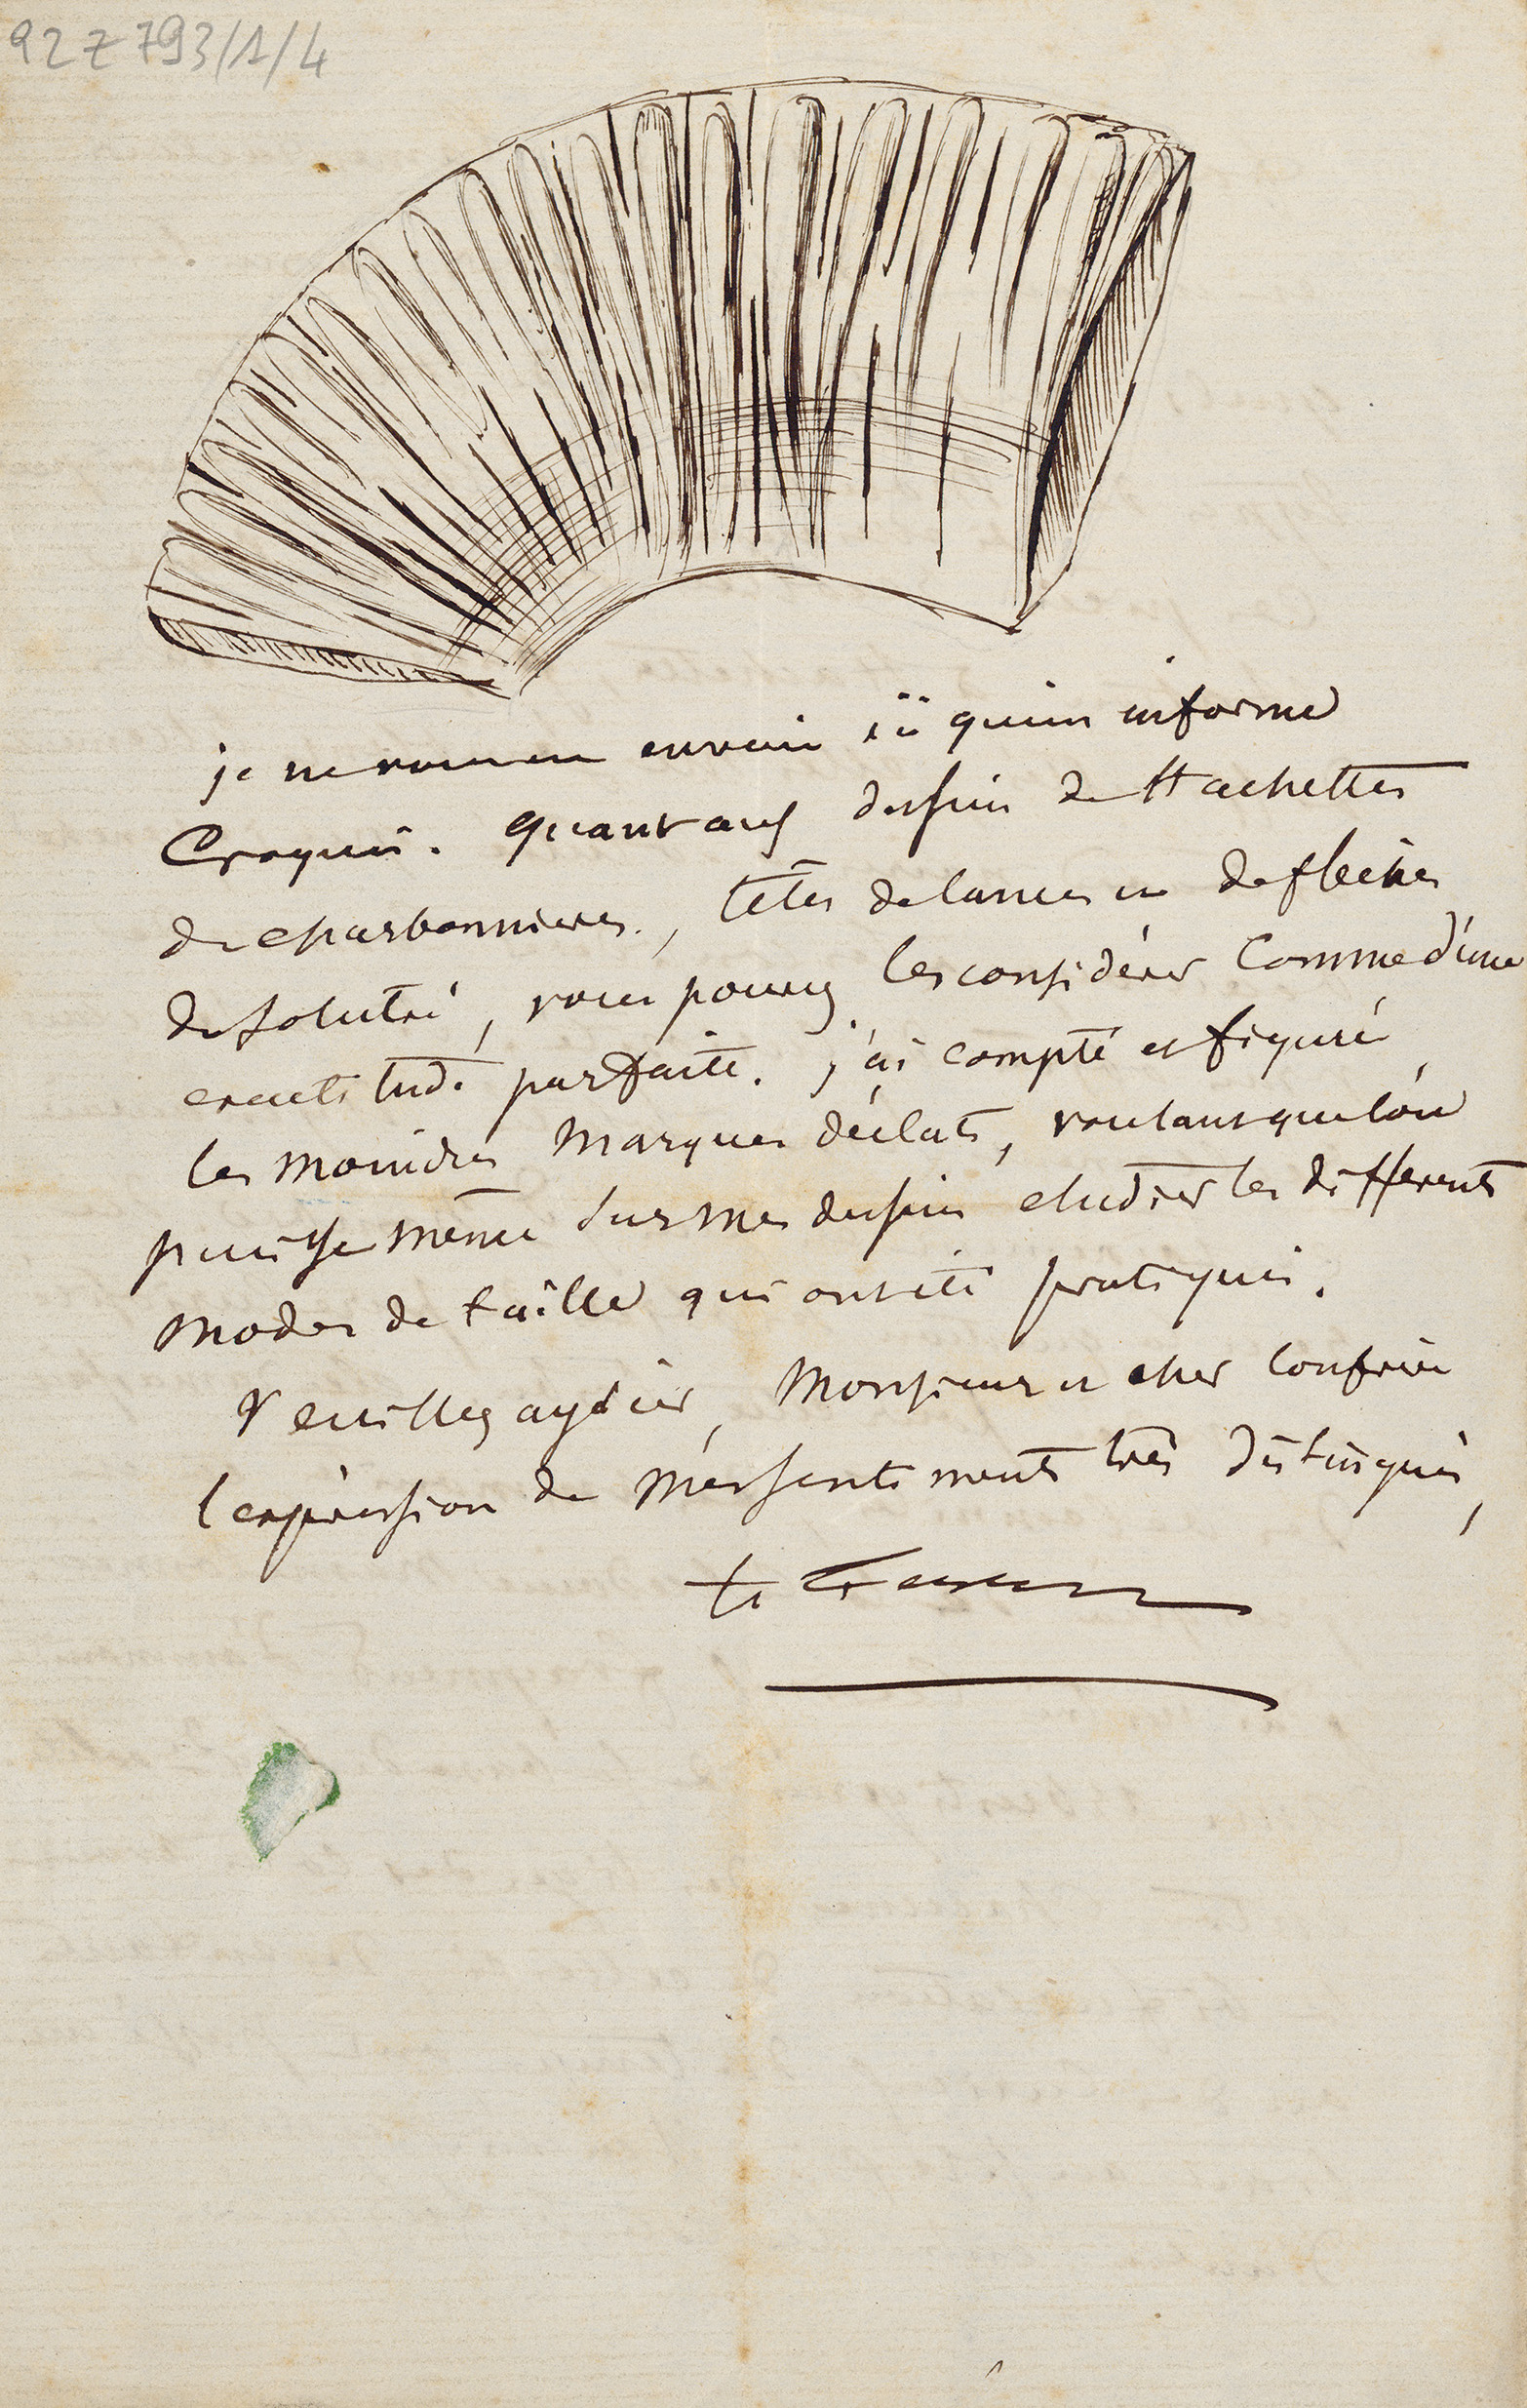 92 Z 793/1/4
je ne vous en envoie ici qu'un informe
Croquis. Quant aux dessins de Hachettes
de charbonnières, têtes de lances et de flèches
de solutré, vous pouvez les considérer comme d'une
exactitude parfaite. j'ai compté et figuré
les moindres marques d'éclats, voulant que l'on
puisse même sur mes dessins etudier les différents
modes de taille qui ont été pratiqués.
Veuillez agréer, Monsieur et cher confrère
l'expression de mes sentiments très distingués,